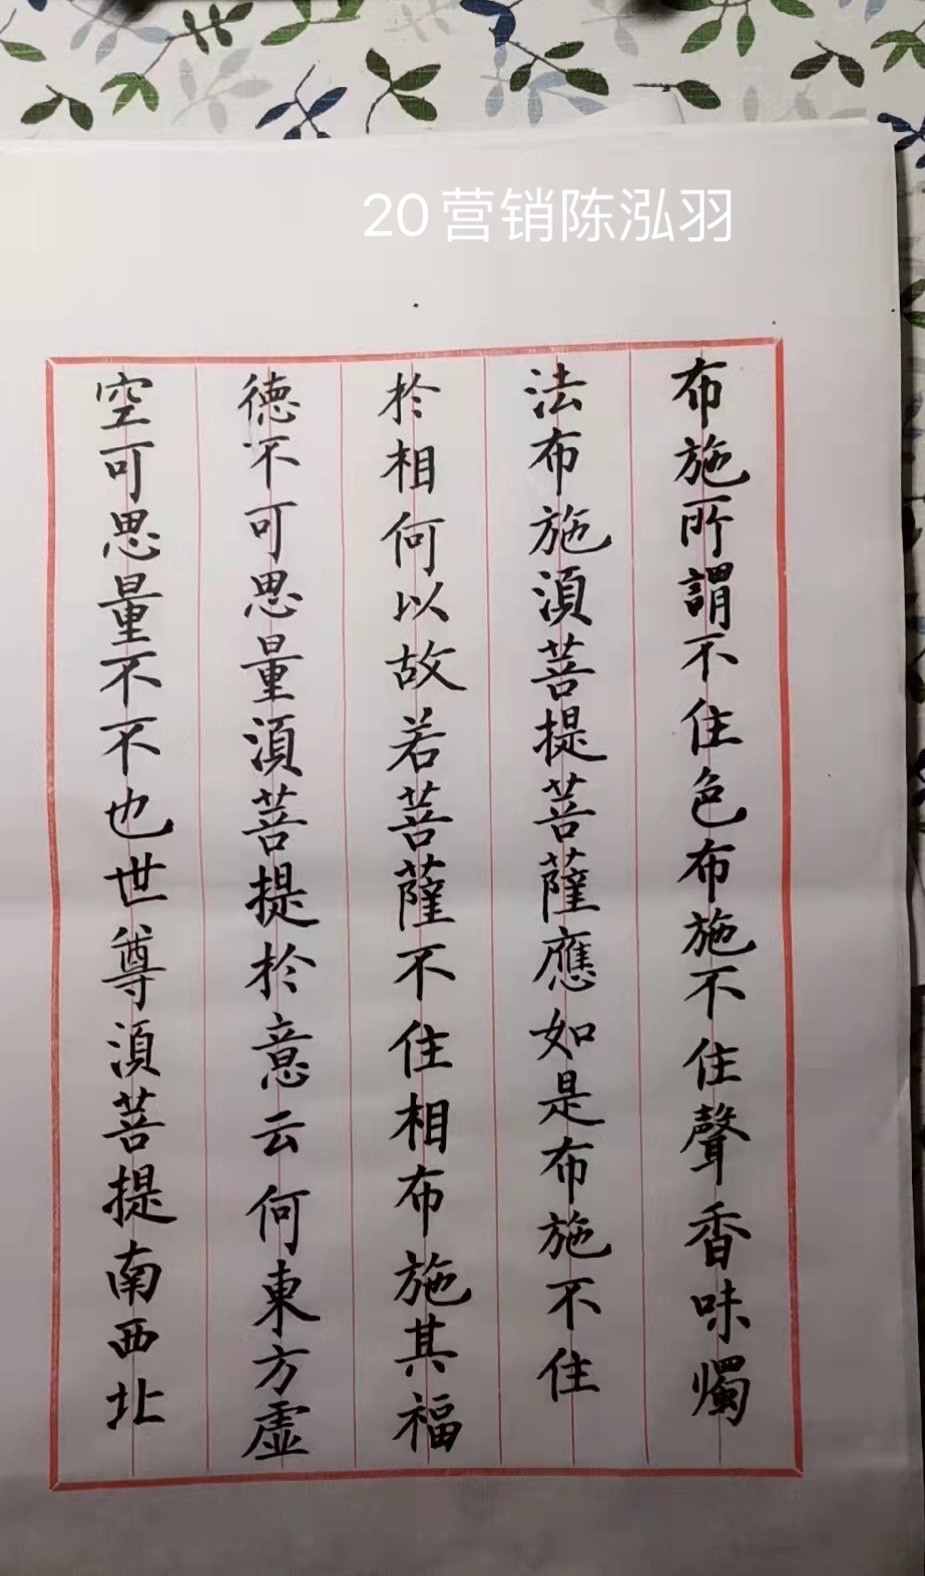 20营销陈泓羽
布施所謂不住色布施不住聲香味燭
法布施湏菩提菩薩應如是布施不住
於相何以故若菩薩不住相布施其福
德不可思量湏菩提於意云何東方虛
空可思量不不也世尊湏菩提南西北